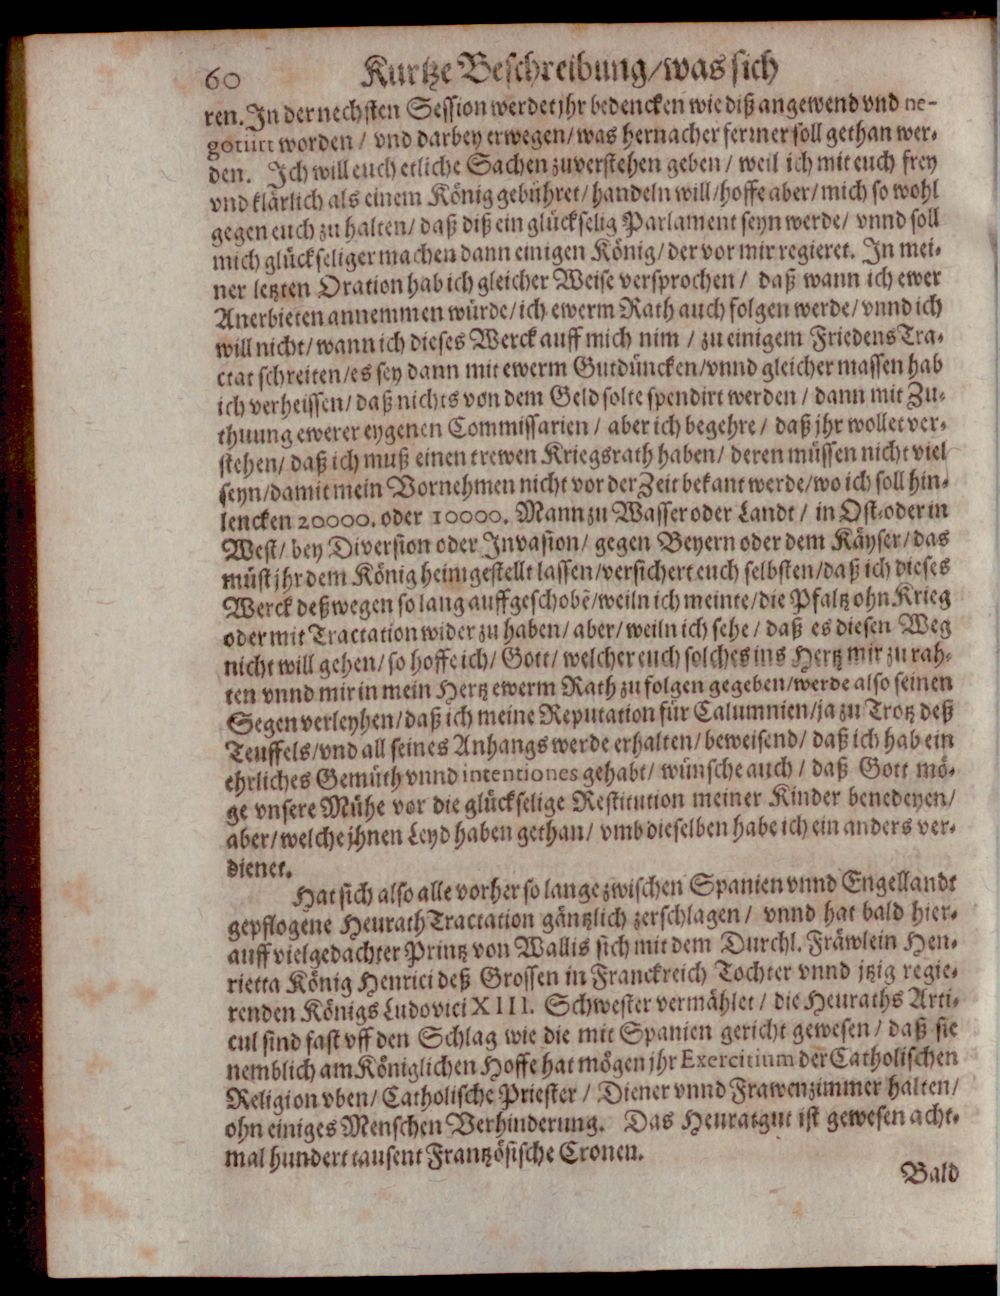 60 Kurtze Beschreibung/was sich
ren. In der nechsten Session werdet jhr bedencken wie diß angewend vnd ne-
gotiirt worden / vnd darbey erwegen/was hernacher ferrner soll gethan wer-
den. Ich will euch etliche Sachen zuverstehen geben / weil ich mit euch frey
vnd klärlich als einem König gebühret/handeln will/hoffe aber/mich so wohl
gegen euch zu halten/ daß diß ein glückselig Parlament seyn werde/ vnnd soll
mich glückseliger machen dann einigen König/der vor mir regieret. In mei-
ner letzten Oration hab ich gleicher Weise versprochen / daß wann ich ewer
Anerbieten annemmen würde/ich ewerm Rath auch folgen werde/vnnd ich
will nicht/wann ich dieses Werck auff mich nim / zu einigem Friedens Tra-
ctat schreiten/es sey dann mit ewerm Gutdüncken/vnnd gleicher massen hab
ich verheissen/daß nichts von dem Geld solte spendirt werden / dann mit Zu-
thuung ewerer eygenen Commissarien / aber ich begehre / daß jhr wollet ver-
stehen/daß ich muß einen trewen Kriegsrath haben/ deren müssen nicht viel
seyn/damit mein Vornehmen nicht vor der Zeit bekant werde/wo ich soll hin-
lencken 20000. oder 10000. Mann zu Wasser oder Landt / in Ost-oder in
West/bey Diversion oder Invasion/ gegen Beyern oder dem Käyser/das
müst jhr dem König heimgestellt lassen/versichert euch selbsten/daß ich dieses
Werck deßwegen so lang auffgeschobē/weiln ich meinte/die Pfaltz ohn Krieg
oder mit Tractation wider zu haben/aber/weiln ich sehe / daß es diesen Weg
nicht will gehen/so hoffe ich/Gott/welcher euch solches ins Hertz mir zu rah-
ten vnnd mir in mein Hertz ewerm Rath zu folgen gegeben/werde also seinen
Segen verleyhen/daß ich meine Reputation für Calumnien/ja zu Trotz deß
Teuffels/vnd all seines Anhangs werde erhalten/beweisend/ daß ich hab ein
ehrliches Gemüth vnnd intentiones gehabt/ wünsche auch / daß Gott mö-
ge vnsere Mühe vor die glückselige Restitution meiner Kinder benedeyen/
aber/welche jhnen Leyd haben gethan/ vmb dieselben habe ich ein anders ver-
dienet.
Hat sich also alle vorher so lange zwischen Spanien vnnd Engellandt
gepflogene Heurath Tractation gäntzlich zerschlagen / vnnd hat bald hier-
auff vielgedachter Printz von Wallis sich mit dem Durchl. Fräwlein Hen-
rietta König Henrici deß Grossen in Franckreich Tochter vnnd jtzig regie-
renden Königs Ludovici XIII. Schwester vermählet / die Heuraths Arti-
cul sind fast vff den Schlag wie die mit Spanien gericht gewesen/ daß sie
nemblich am Königlichen Hoffe hat mögen jhr Exercitium der Catholischen
Religion vben/Catholische Priester / Diener vnnd Frawenzimmer halten/
ohn einiges Menschen Verhinderung. Das Heuratgut ist gewesen acht-
mal hundert tausent Frantzösische Cronen.
Bald